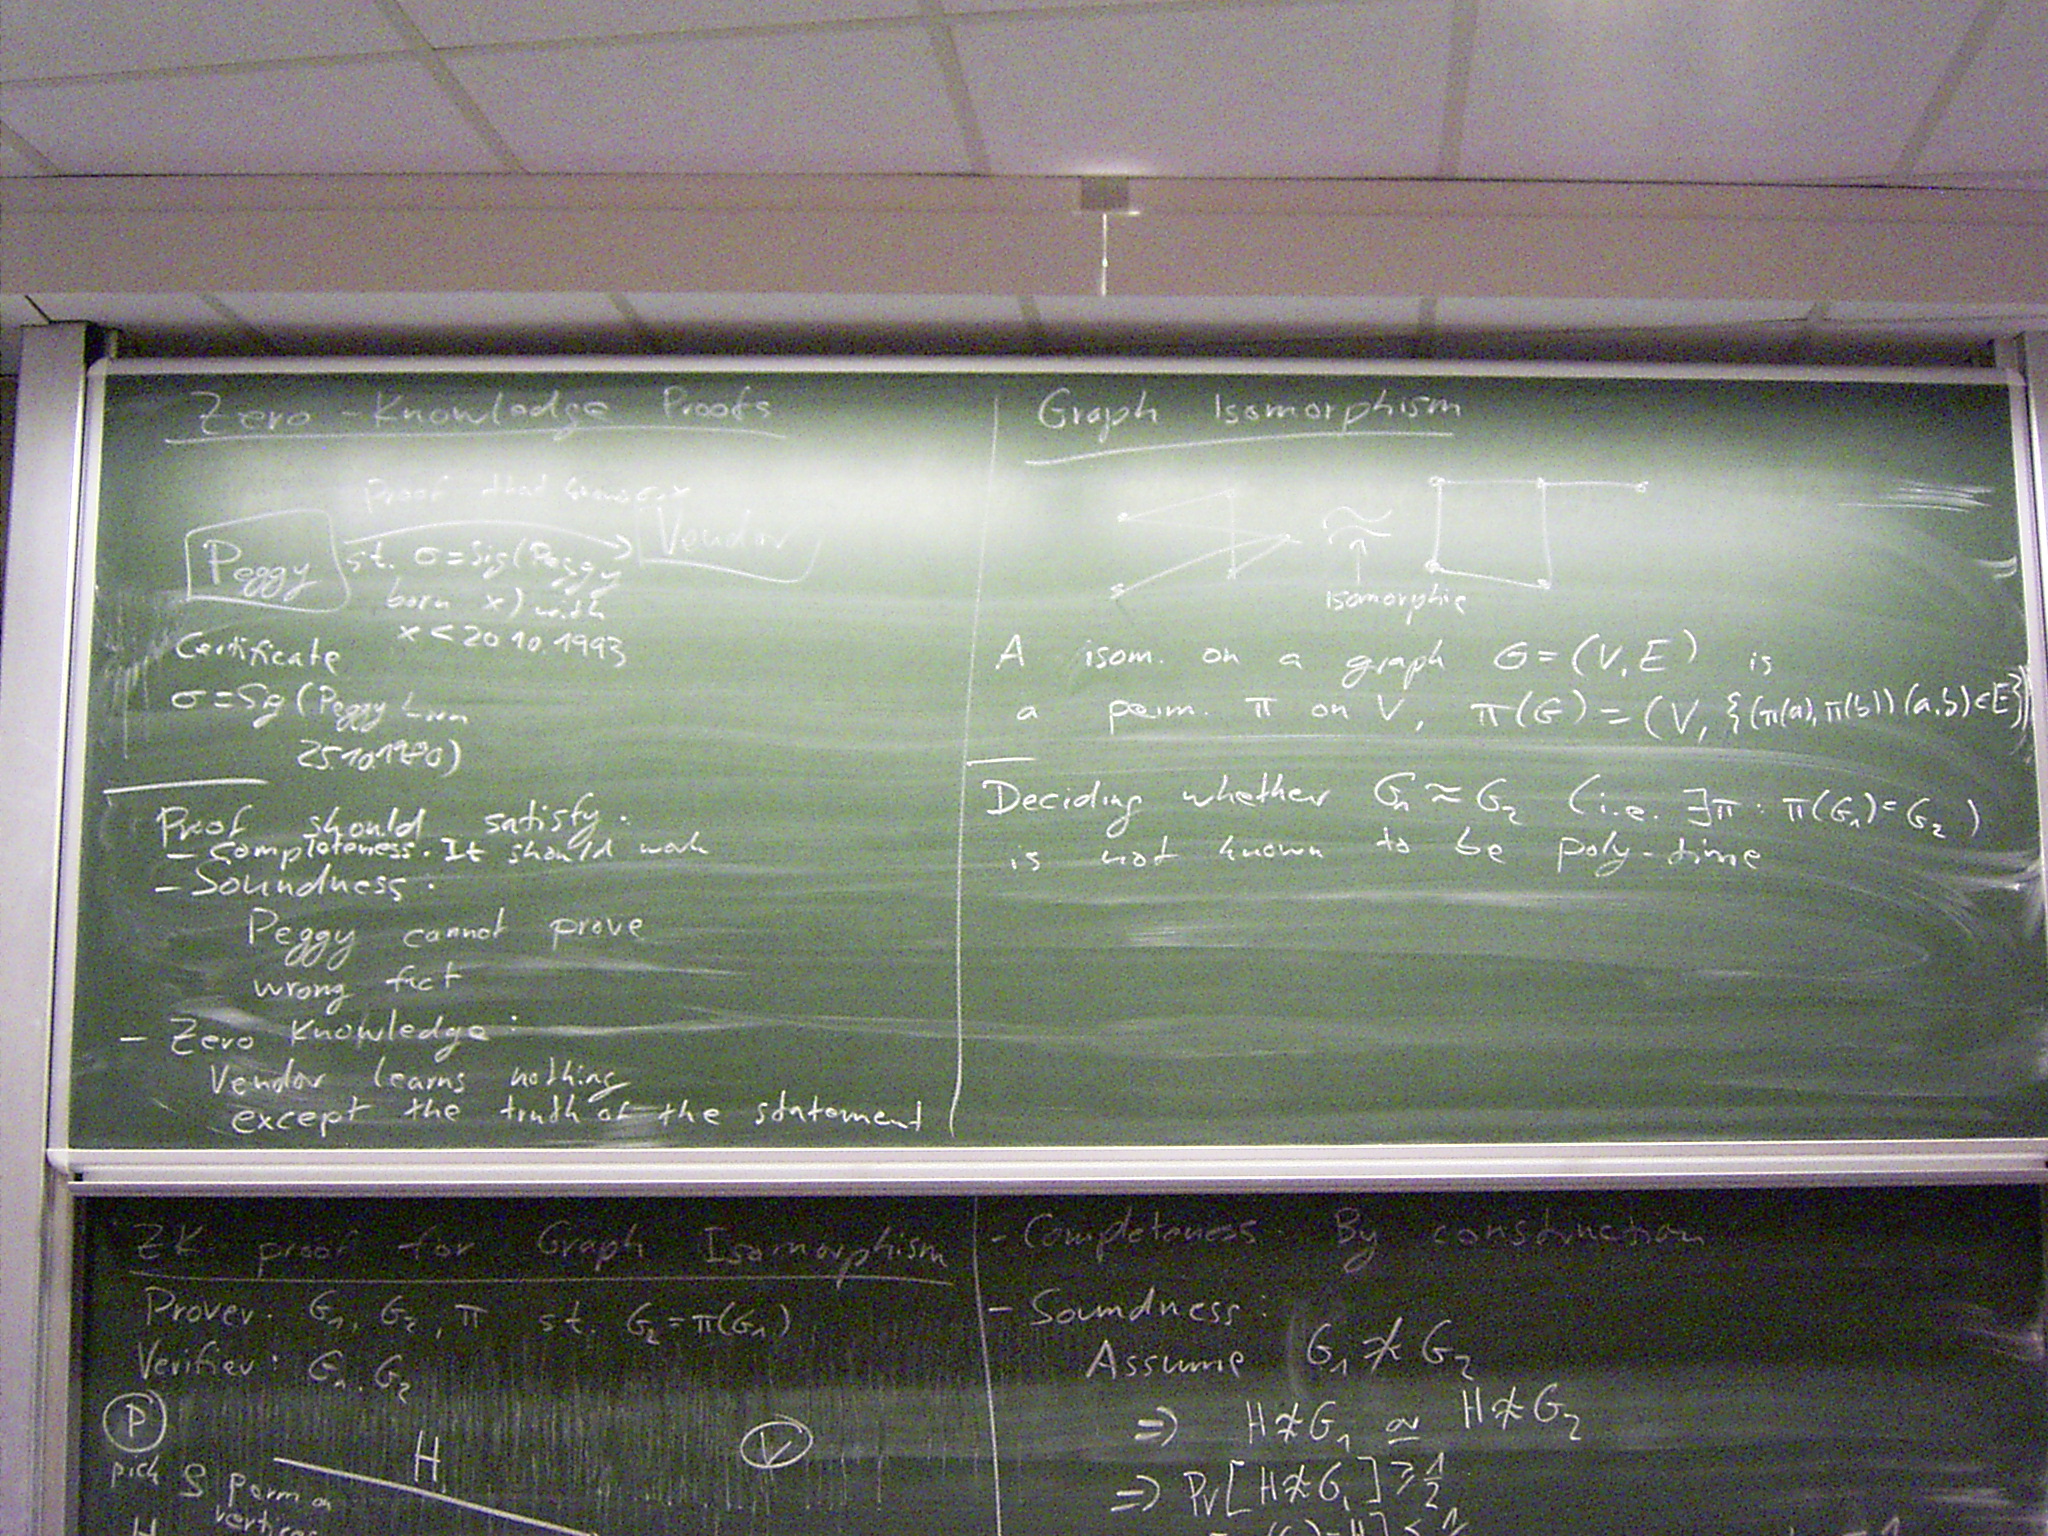 Zero-Knowledge Proofs
Proof that knows σ,x
Peggy
Vendor
st. σ=Sig(Peggy
born x) with
x<20.10.1993
Certificate
σ=Sig(Peggy born
25.10.1980)
Proof should satisfy:
- Completeness: It should work
- Soundness:
Peggy cannot prove
wrong fact
- Zero Knowledge:
Vendor learns nothing
except the truth of the statement
Graph Isomorphism
≈
↑
isomorphic
A isom. on a graph G=(V,E) is
a perm. π on V, π(G)=(V,{(π(a),π(b)) (a,b)∈E})
Deciding whether G₁≈G₂ (i.e. ∃π: π(G₁)=G₂)
is not known to be poly-time
ZK proof for Graph Isomorphism
Prover: G₁, G₂, π st. G₂=π(G₁)
Verifier: G₁, G₂
P
H
V
pick ρ perm on
vertices
H
- Completeness: By construction
- Soundness:
Assume G₁≉G₂
⇒ H≉G₁ or H≉G₂
⇒ Pr[H≉Gᵢ]≥½